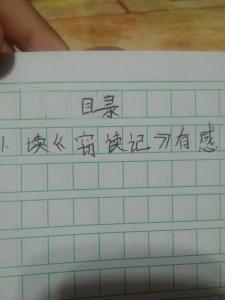 目录
1. 读《窃读记》有感